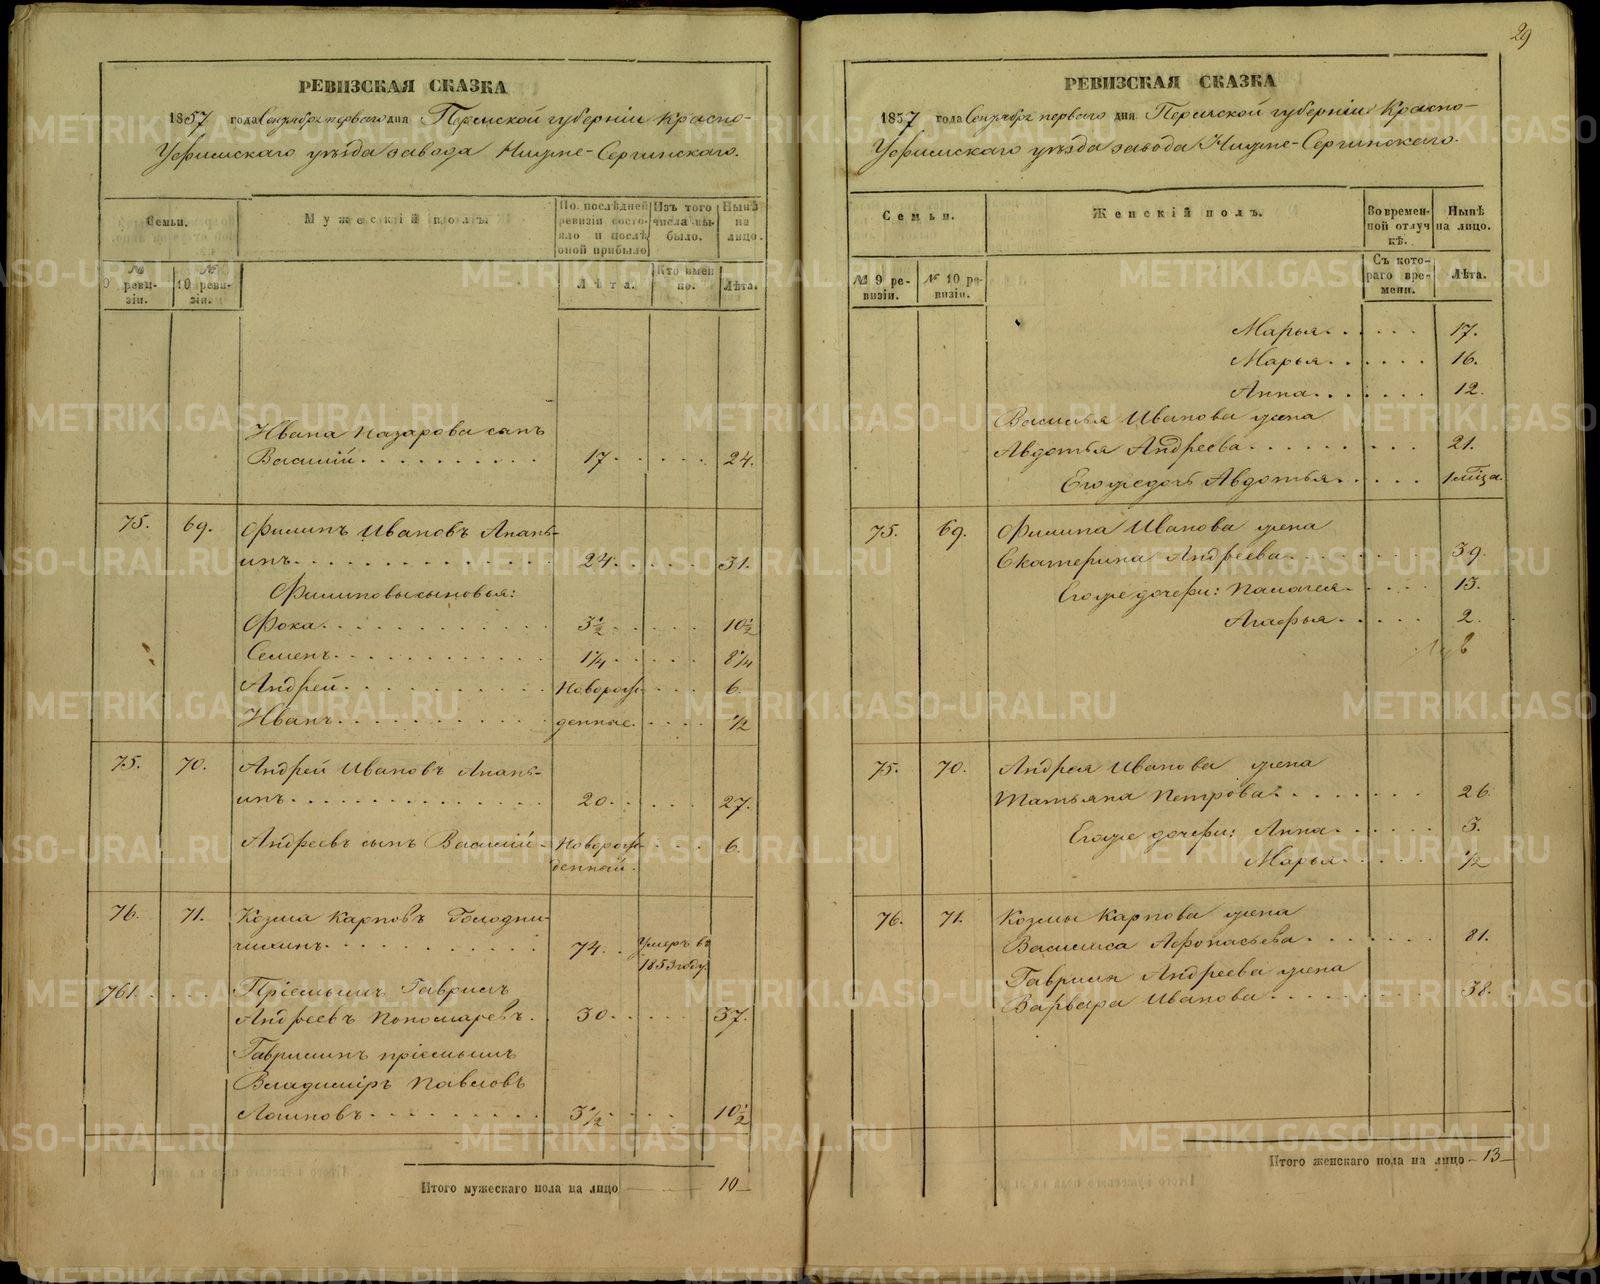 РЕВИЗСКАЯ СКАЗКА
1857 года Сентября первого дня Пермской губерніи Красно-
Уфимскаго уѣзда завода Нижне-Сергинскаго.
Семьи.
Мужескій полъ.
По послѣдней ревизіи состояло и послѣ оной прибыло
Изъ того числа выбыло.
Нынѣ на лицо.
№ 9 ревизіи.
№ 10 ревизіи.
Лѣта.
Кто именно.
Лѣта.
Ивана Назарова сынъ
Василій 17 24.
75. 69. Филипъ Ивановъ Анань-
инъ 24 31.
Филиповы сыновья:
Фока 3½ 10½
Семенъ 1¼ 8¼
Андрей Новорож- 6.
Иванъ денные ½
75. 70. Андрей Ивановъ Анань-
инъ 20 27.
Андреевъ сынъ Василій Новорож- 6.
денный.
76. 71. Козма Карповъ Голодни-
чихинъ 74 Умеръ въ
1853 году.
761 Пріемышъ Гаврилъ
Андреевъ Пономаревъ 30 37.
Гаврилинъ пріемышъ
Владиміръ Павловъ
Лошповъ 3½ 10½
Итого мужескаго пола на лицо 10
29
РЕВИЗСКАЯ СКАЗКА
1857 года Сентября первого дня Пермской губерніи Красно-
Уфимскаго уѣзда завода Нижне-Сергинскаго.
Семьи.
Женскій полъ.
Во временной отлучкѣ.
Нынѣ на лицо.
№ 9 ревизіи.
№ 10 ревизіи.
Съ котораго времени.
Лѣта.
Марья 17.
Марья 16.
Анна 12.
Василья Иванова жена
Авдотья Андреева 21.
Его же дочь Авдотья 1 мѣсца.
75. 69. Филипа Иванова жена
Екатерина Андреева 39.
Его же дочери: Палагея 13.
Агафья 2.
75. 70. Андрея Иванова жена
Татьяна Петрова 26.
Его же дочери: Анна 3.
Марья ½
76. 71. Козмы Карпова жена
Василиса Афонасьева 81.
Гаврила Андреева жена
Варвара Иванова 38.
Итого женскаго пола на лицо 13
METRIKI.GASO-URAL.RU